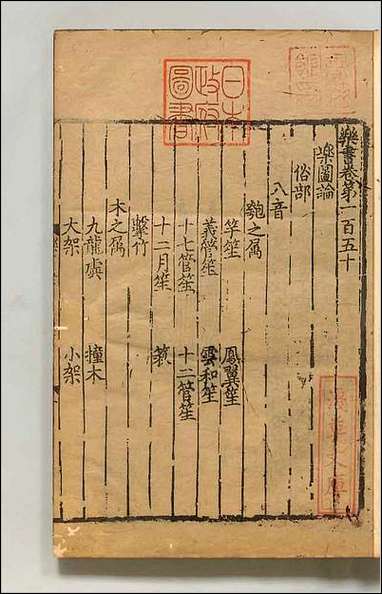 樂書卷第一百五十
樂圖論
俗部
八音
匏之屬
竽笙 鳳翼笙
義管笙 雲和笙
十七管笙 十二管笙
十二月笙 簧
擊竹
木之屬
九龍虡 撞木
大架 小架
日本
政府
圖書